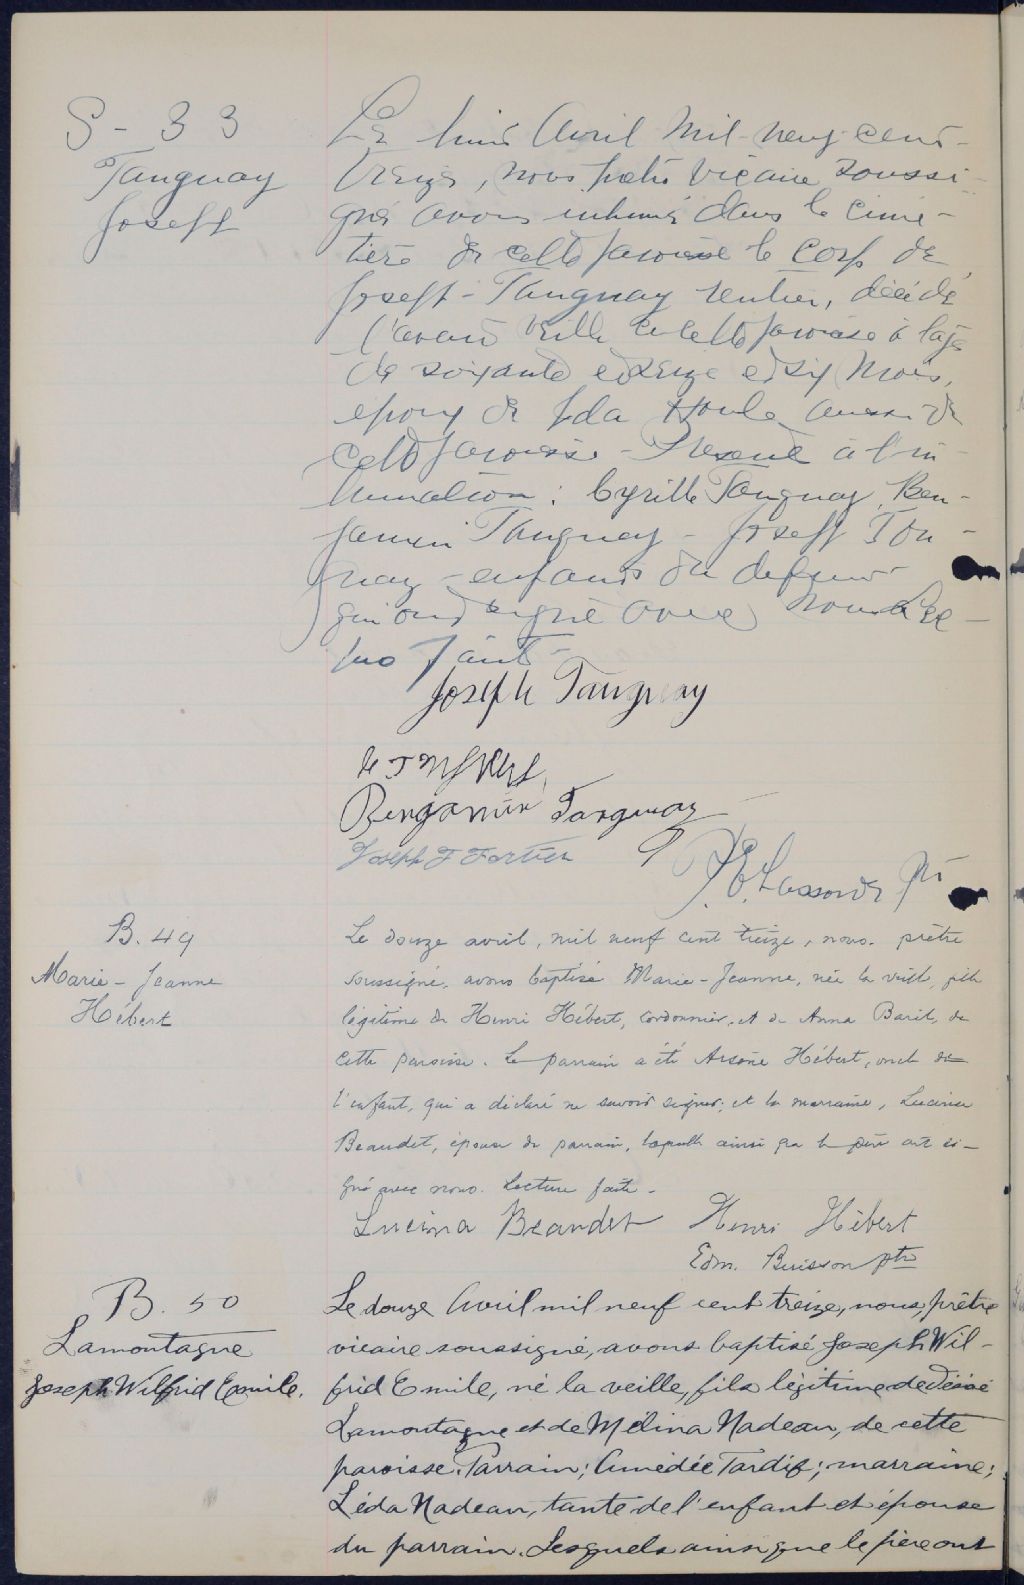 S - 33
Tanguay
Joseph
Le huit Avril Mil-neuf-cent-
treize, nous prêtre vicaire soussi-
gné avons inhumé dans le cime-
tière de cette paroisse le corps de
Joseph-Tanguay rentier, décédé
l'avant veille de cette paroisse à l'age
de soixante et seize et six mois,
epoux de Houle aussi de
cette paroisse - Present à l'in-
humation : Cyrille Tanguay, Ben-
jamin Tanguay - Joseph Tan-
guay - enfants du defunt
qui ont signé avec nous. Lec-
ture faite -
Joseph Tanguay
Benjamin Tanguay
Joseph F Fortier
P.E. Lassonde Ptr
B. 49
Marie - Jeanne
Hébert
Le douze avril, mil neuf cent treize, nous, prêtre
soussigné, avons baptisé Marie-Jeanne, née la veille, fille
légitime de Henri Hébert, cordonnier, et de Anna Baril, de
cette paroisse. Le parrain a été Arsène Hébert, oncle de
l'enfant, qui a déclaré ne savoir signer; et la marraine, Lucina
Beaudet, épouse du parrain, laquelle ainsi que le père ont si-
gné avec nous. Lecture faite -
Lucina Beaudet Henri Hébert
Edm. Buisson ptre
B. 50
Lamontagne
Joseph Wilfrid Emile.
Le douze Avril mil neuf cent treize, nous, prêtre
vicaire soussigné, avons baptisé Joseph Wil-
frid Emile, né la veille, fils légitime de Désiré
Lamontagne et de Mélina Nadeau, de cette
paroisse. Parrain; Amédée Tardif; marraine;
Léda Nadeau, tante de l'enfant et épouse
du parrain. Lesquels ainsi que le père ont